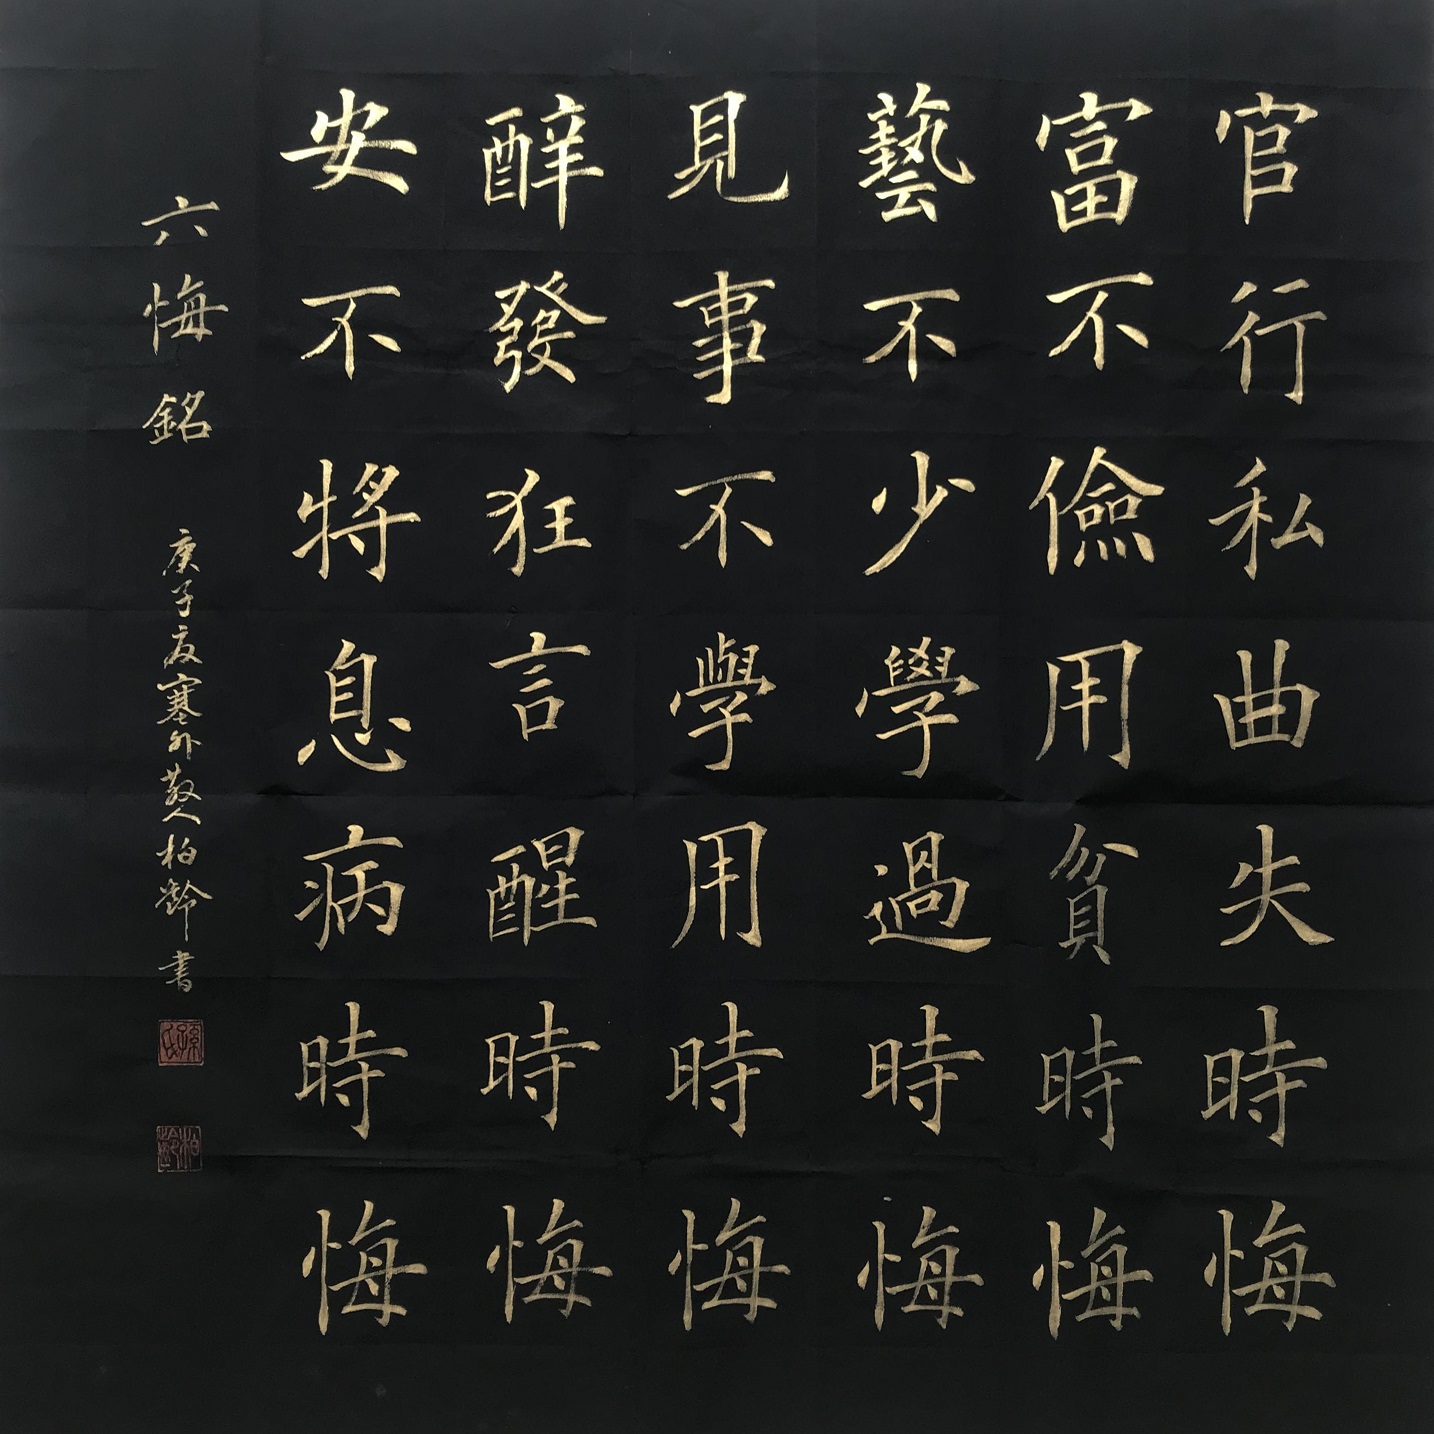 官行私曲失時悔
富不儉用貧時悔
藝不少學過時悔
見事不學用時悔
醉發狂言醒時悔
安不將息病時悔
六悔銘
庚子夏塞外散人柏齡書
孫氏
柏齡